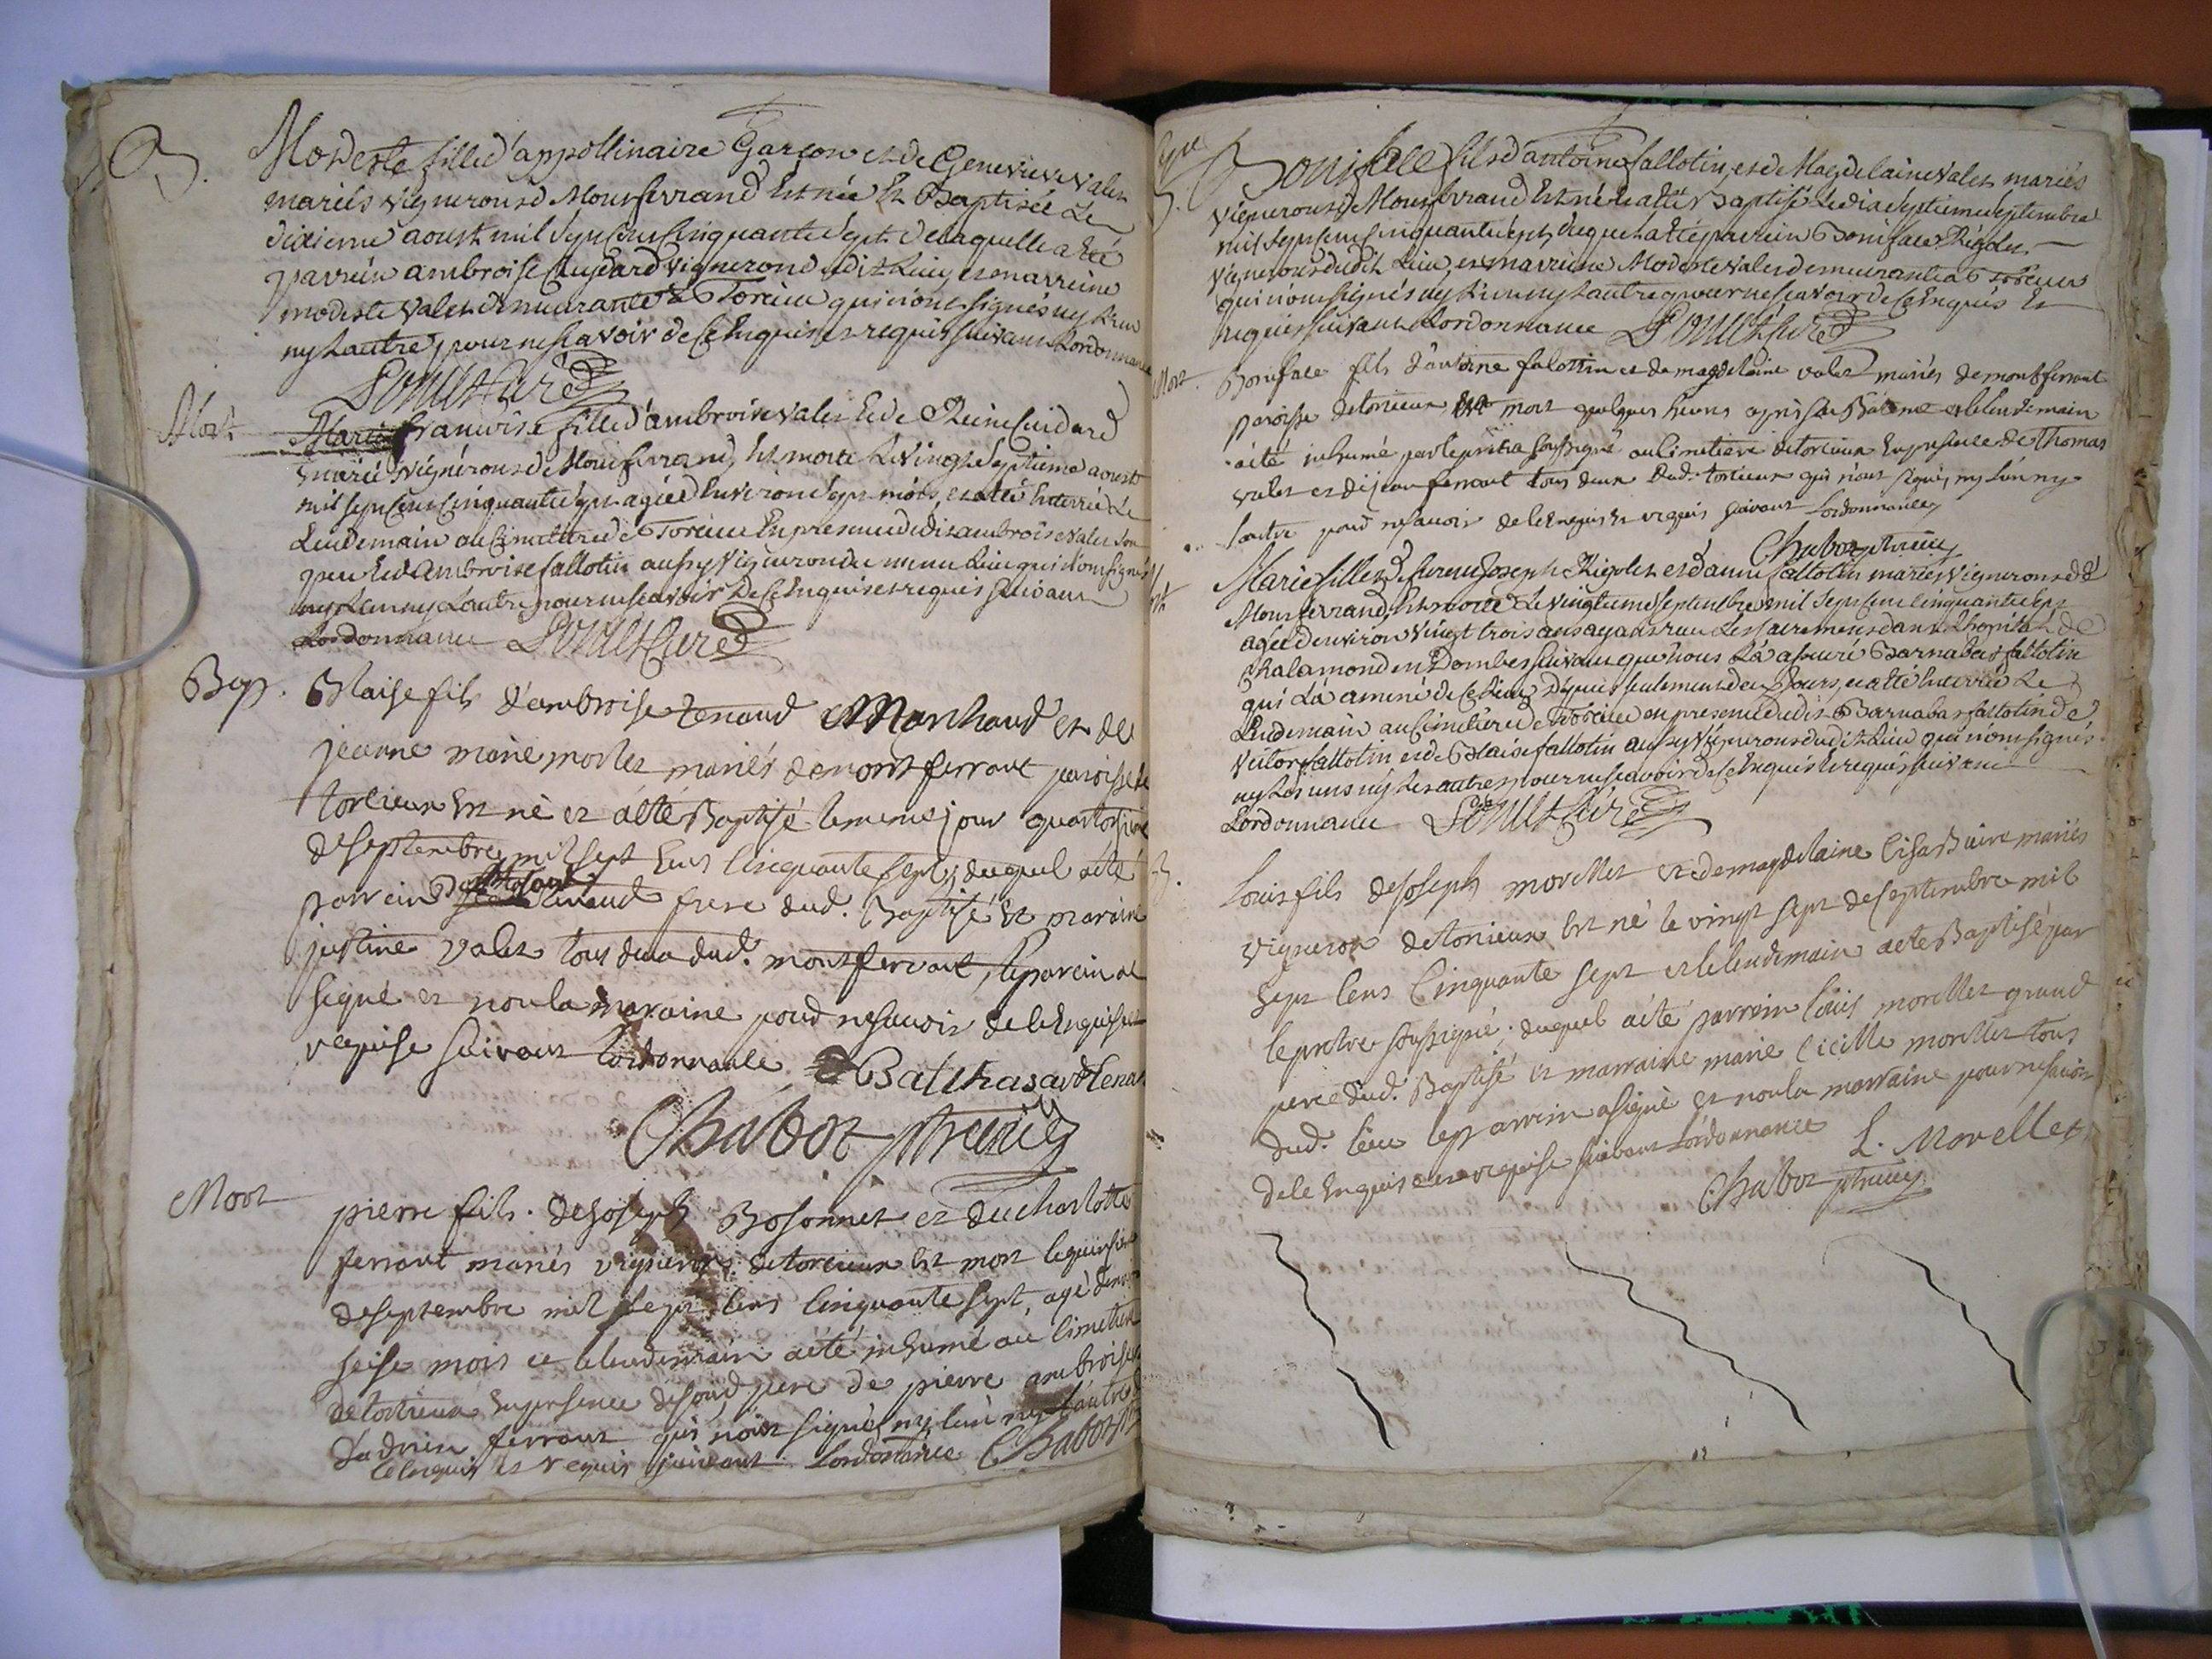 B.
Modeste fille d'appollinaire Garçon et de Genevieve Valet
mariés vignerons de Monferrand Est née Et Baptisée Le
dixieme aoust mil Sept Cens Cinquante Sept de laquelle a Eté
parrein ambroise Cuidard vigneron dudit Lieu, et marreine
modeste Valet demeurante à Torcieu qui n'ont signés ny L'un
ny Lautre, pour ne scavoir de ce Enquis et requis suivant Lordonnance
Curé
Mort
Marie francoise fille d'ambroise Valet Et de Reine Cuidard
mariés vignerons de Monferrand, Est morte Le Vingt Septieme aoust
mil sept cens Cinquante sept agée d'Environ sept mois, et a été Enterrée Le
Lendemain au Cimetiere de Torcieu En presence dudit ambroise Valet son
pere Et d'ambroise fallotin aussy Vigneron du meme Lieu qui n'ont signés
ny Lun ny Lautre pour ne scavoir de ce Enquis et requis suivant
Lordonnance Curé
Bap.
Blaise fils d'ambroise tenand Marchand et de
jeanne marie morlet mariés de montferrant paroisse de
torcieux Est né et a été Baptisé le meme jour quatorsieme
de septembre mil sept Cens Cincquante sept, duquel a été
parrein Balthasard tenand frere dud. Baptisé et maraine
justine valet tous deux dud. montferrant, le parrein a
signé et non la maraine pour ne savoir de ce Enquise et
requise suivant lordonnance Balthasard tenan
Chabot ptre vic
Mort
pierre fils de Joseph Bosonnet et de Charlotte
ferrant mariés vignerons de torcieux Est mort le quinsieme
de septembre mil sept Cens Cinquante sept, agé denviron
seise mois et le lendemain a été inhumé au Cimetiere
de torcieux En presence de son pere de pierre ambroise
d'adrien ferrant qui n'ont signés ny lun ny lautre
de ce Enquis et requis suivant lordonnance Chabot ptre
B.
Boniface fils d'antoine fallotin, et de Magdelaine Valet mariés
vignerons de Monferrand Est né Et a été Baptisé Le dix septieme septembre
mil sept cens cinquante sept, duquel a été parrein Boniface Rigolet
vigneron dudit Lieu, et marreine Modeste Valet demeurante à Torcieux
qui n'ont signés ny L'un ny Lautre pour ne scavoir de ce Enquis Et
requis suivant Lordonnance Curé
Mort
Boniface fils d'antoine falottin et de magdelaine valet mariés de montferrant
paroisse de torcieux Est mort quelques heures après son Batême et le lendemain
a été inhumé par le pretre soussigné au Cimetiere de torcieux En presence de Thomas
valet et de jean ferrant tous deux dud. torcieux qui n'ont signé, ny lun ny
lautre pour ne savoir de ce Enquis Et requis suivant Lordonnance
Chabot ptre vic
Marie fille de feu Joseph Rigolet et d'anne fallotin mariés vignerons de
Monferrand, Est morte Le vingtieme septembre mil sept cens cinquante sept
agée denviron vingt trois ans ayant reçu Les sacremens dans L'hopital de
Chalamond en Dombes suivant que nous L'a assuré Barnabas fallotin
qui L'a amené de ce Lieu depuis seulement deux Jours, et a été Enterrée Le
Lendemain au Cimetiere de Torcieu en presence dudit Barnabas fallotin de
Victor fallotin et de Blaise fallotin aussy Vignerons dudit Lieu qui n'ont signés
ny Les uns ny Les autres pour ne scavoir de ce Enquis Et requis suivant
Lordonnance Curé
B.
Louis fils de Joseph morellet et de magdelaine mariés
vigneron de torcieux Est né le vingt sept de septembre mil
sept Cens Cinquante sept et le lendemain a été Baptisé par
le pretre soussigné, duquel a été parrein louis morellet grand
pere dud. Baptisé et marraine marie Cécille morellet tous
dud. lieu le parrein a signé et non la marraine pour ne savoir
de ce Enquise et requise suivant Lordonnance L. Morellet
Chabot ptre vic